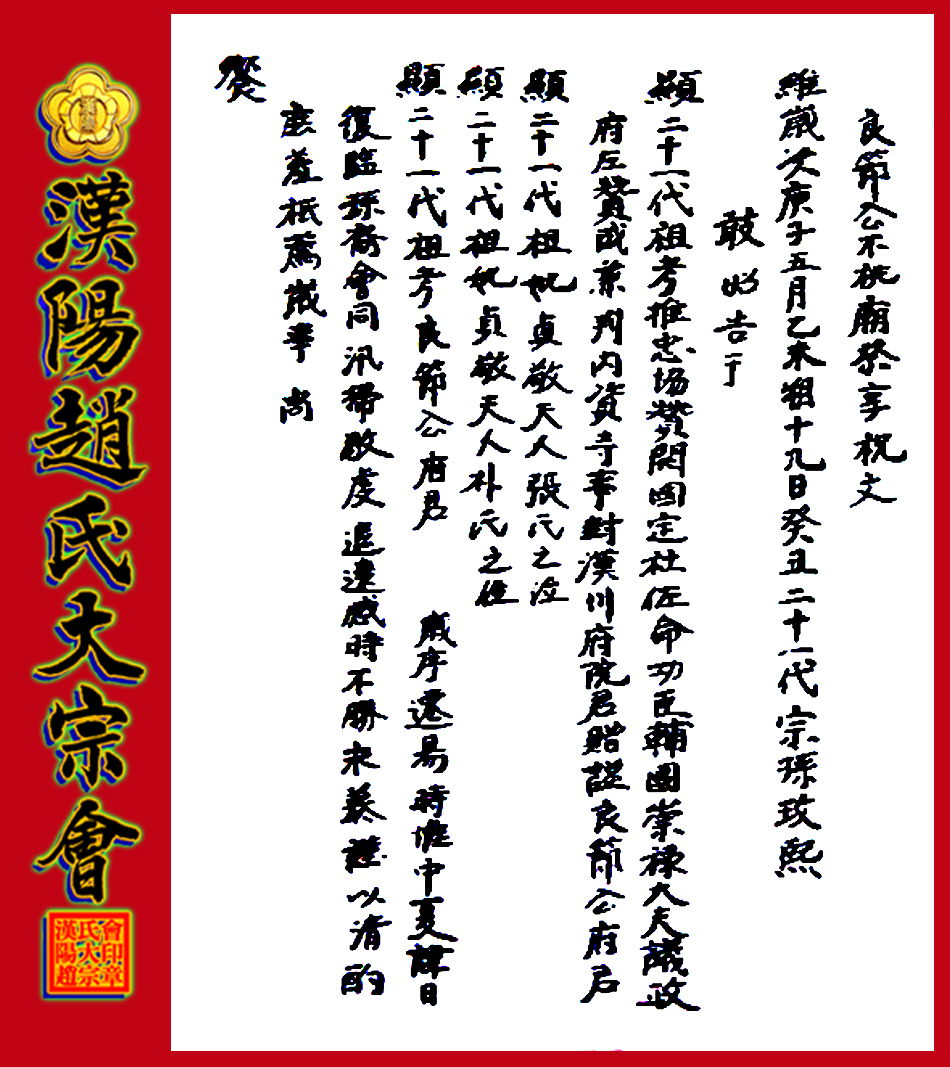 良節公不祧廟祭享祝文
維歲次庚子五月乙未朔十九日癸丑二十一代宗孫玫熙
敢昭告于
顯二十一代祖考推忠協贊開國定社佐命功臣輔國崇祿大夫議政
府左贊成兼判內資寺事封漢川府院君貽諡良節公府君
顯二十一代祖妣貞敬夫人張氏之位
顯二十一代祖妣貞敬夫人朴氏之位
顯二十一代祖考良節公府君 歲序遷易時惟中夏諱日
復臨孫裔會同汎掃敬虔追遠感時不勝永慕謹以清酌
庶羞祗薦歲事 尚
饗
漢陽趙氏大宗會
漢陽趙
氏大宗
會印章